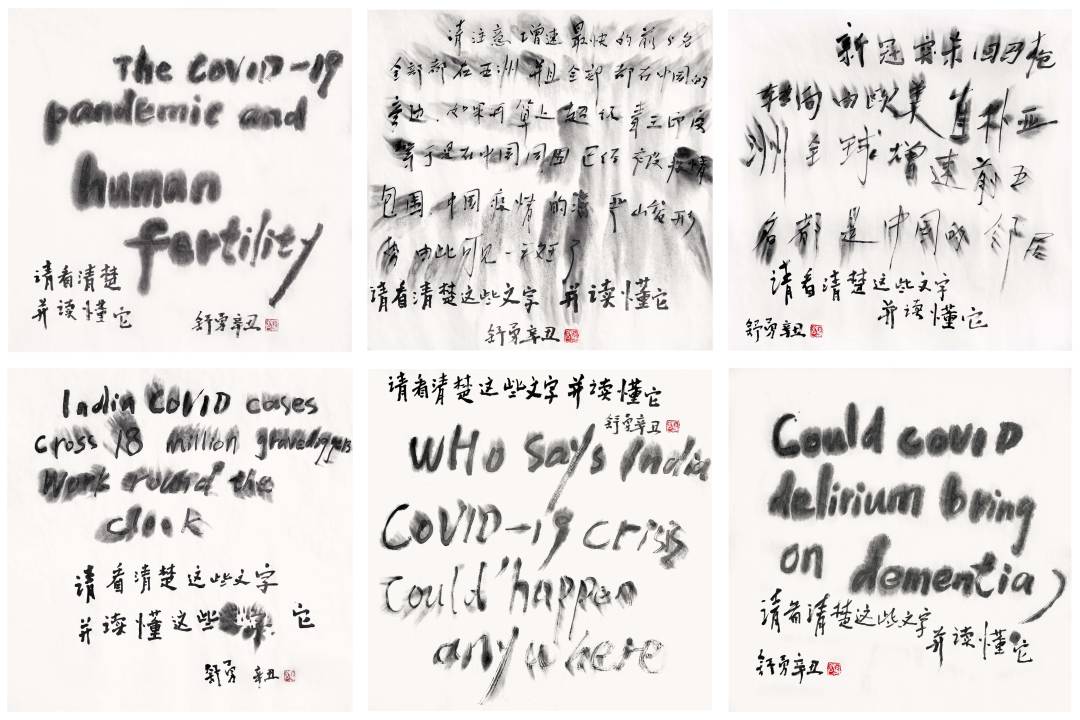 The COVID-19
pandemic and
human
fertility
请看清楚
并读懂它
舒勇辛丑
请注意增速最快的前5名
全部都在亚洲并且全部都在中国的
边，如果再算上超 印度
等于是在中国周围已经被疫情
包围，中国疫情的 严 形
势由此可见一斑了
请看清楚这些文字 并读懂它
舒勇辛丑
新冠 杀回马枪
转向由欧美 扑亚
洲全球增速前五
名都是中国的邻居
请看清楚这些文字
并读懂它
舒勇辛丑
India COVID cases
cross 18 million gravediggers
Work round the
clock
请看清楚这些文字
并读懂这些 它
舒勇辛丑
请看清楚这些文字并读懂它
舒勇辛丑
WHO says India
COVID-19 crisis
could happen
anywhere
Could COVID
delirium bring
on dementia
请看清楚这些文字
并读懂它
舒勇辛丑